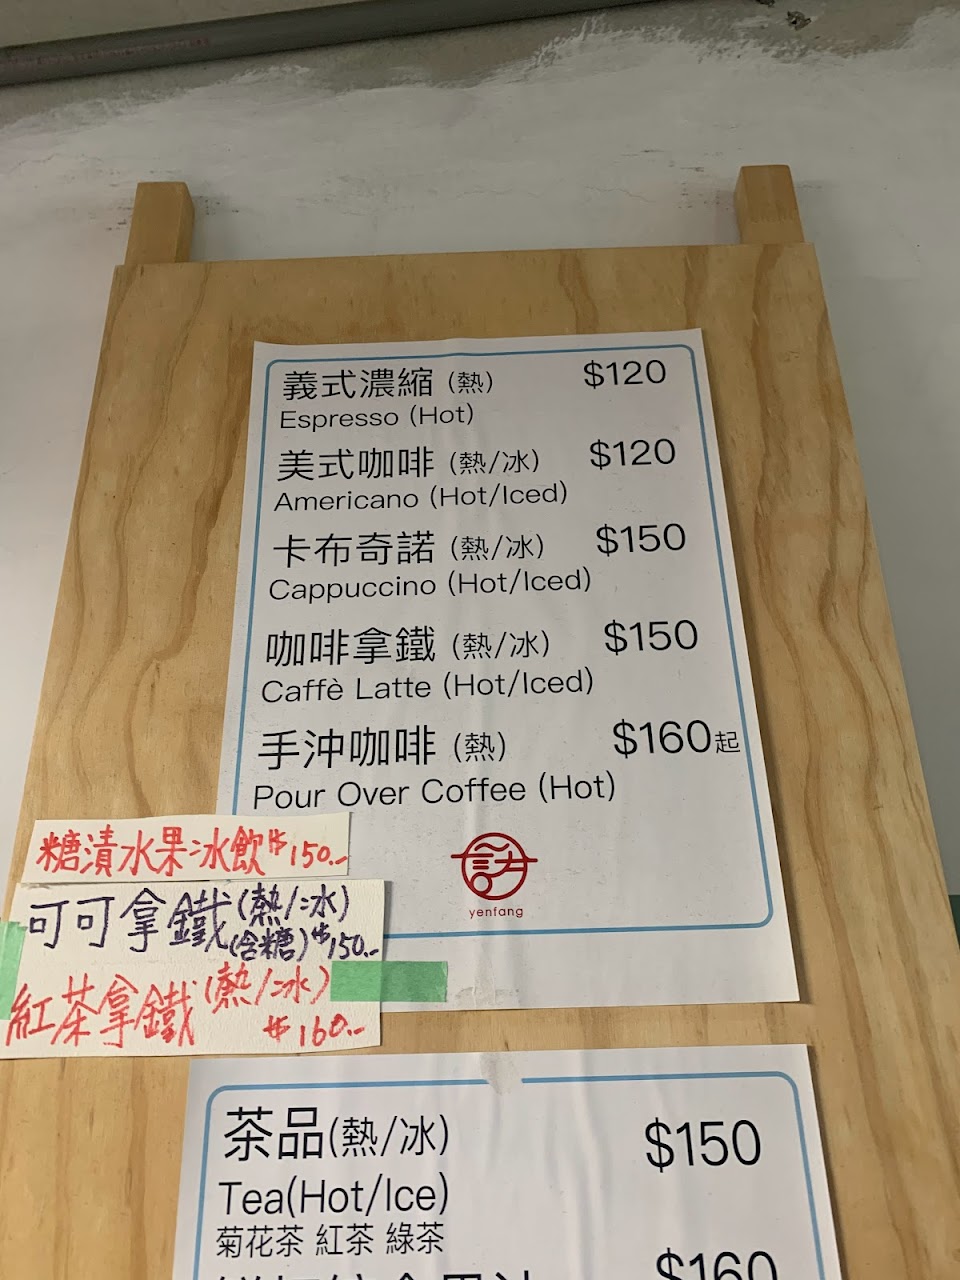 義式濃縮 (熱) $120
Espresso (Hot)
美式咖啡 (熱/冰) $120
Americano (Hot/Iced)
卡布奇諾 (熱/冰) $150
Cappuccino (Hot/Iced)
咖啡拿鐵 (熱/冰) $150
Caffè Latte (Hot/Iced)
手沖咖啡 (熱) $160起
Pour Over Coffee (Hot)
yenfang
糖漬水果冰飲 $150.-
可可拿鐵 (熱/冰)
(含糖) $150.-
紅茶拿鐵 (熱/冰)
$160.-
茶品(熱/冰) $150
Tea(Hot/Ice)
菊花茶 紅茶 綠茶
$160